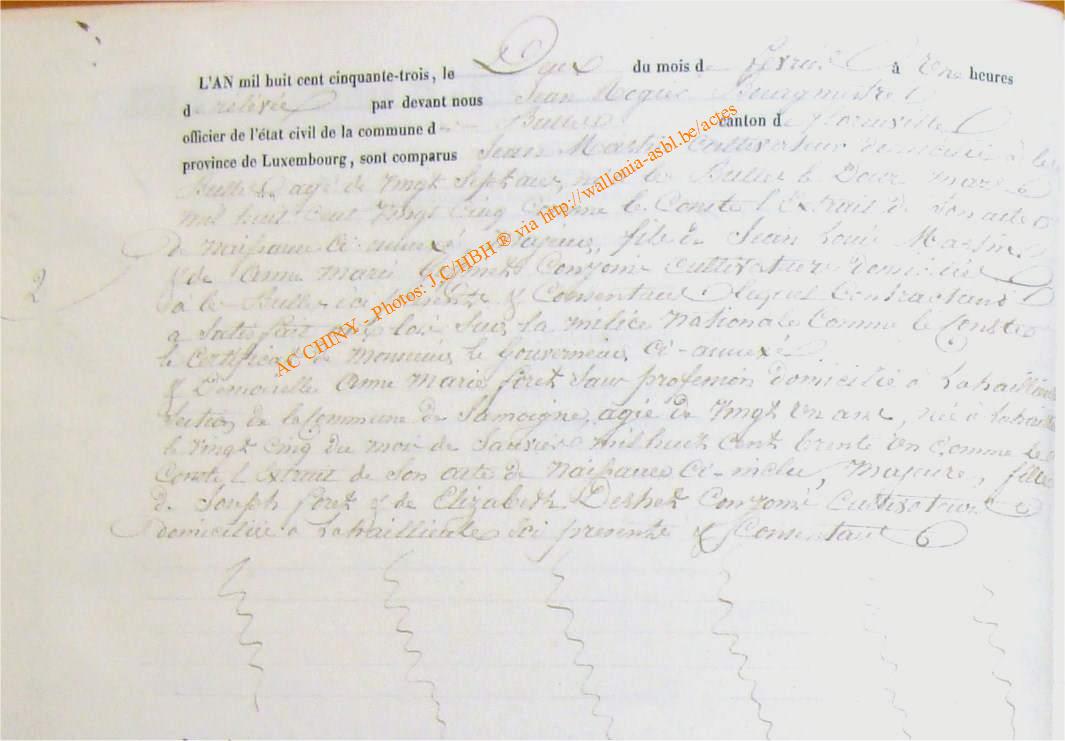 L'AN mil huit cent cinquante-trois, le Deux du mois de février à une heures
de relevée par devant nous Jean Bourgmestre
officier de l'état civil de la commune d Bulles canton de florenville
province de Luxembourg, sont comparus Jean Martin Cultivateur domicilié à les
Bulles, agé de vingt Sept ans, né à les Bulles le Douze mars
mil huit cent vingt Cinq Comme le Conste l'Extrait de Son acte
de naissance ci-annexé Majeur, fils de Jean Louis Martin
& de Anne Marie Conjoint Cultivateur domicilié
à les Bulles ici présents & Consentant lequel Contractant
2
a Satisfait aux lois Sur la milice nationale Comme le Conste
le Certificat de Monsieur le Gouverneur Ci-annexé
& Demoiselle Anne Marie foret Sans profession domicilié à
Section de la Commune de Jamoigne, agée de vingt un ans, née à
le vingt Cinq du mois de Janvier mil huit Cent trente un Comme le
Conste l'Extrait de Son acte de naissance Ci-inclu, Majeure, fille
de Joseph foret & de Elizabeth Conjoint Cultivateur
domicilié à ici présents & Consentant
AC CHINY - Photos: J.C/HBH ® via http://wallonia-asbl.be/actes